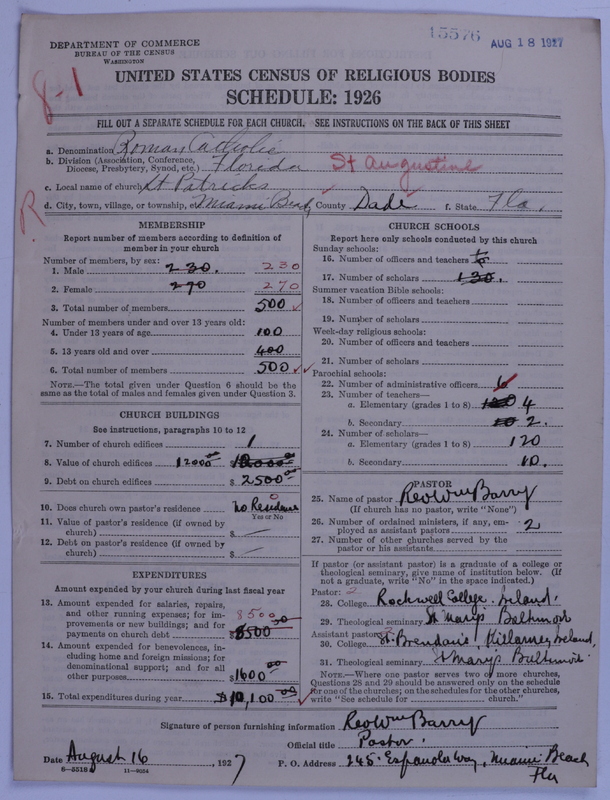 15576 AUG 18 1927
DEPARTMENT OF COMMERCE
BUREAU OF THE CENSUS
WASHINGTON
8-1
UNITED STATES CENSUS OF RELIGIOUS BODIES
SCHEDULE: 1926
FILL OUT A SEPARATE SCHEDULE FOR EACH CHURCH. SEE INSTRUCTIONS ON THE BACK OF THIS SHEET
a. Denomination Roman Catholic
b. Division (Association, Conference, Diocese, Presbytery, Synod, etc.) Florida St Augustine
c. Local name of church St Patricks
d. City, town, village, or township, etc. Miami Beach County Dade f. State Fla.
R
MEMBERSHIP
Report number of members according to definition of
member in your church
Number of members, by sex:
1. Male 230. 230
2. Female 270 270
3. Total number of members 500
Number of members under and over 13 years old:
4. Under 13 years of age 100
5. 13 years old and over 400
6. Total number of members 500
NOTE.—The total given under Question 6 should be the
same as the total of males and females given under Question 3.
CHURCH BUILDINGS
See instructions, paragraphs 10 to 12
7. Number of church edifices 1
8. Value of church edifices 12000 00
9. Debt on church edifices $ 2500 00
10. Does church own pastor's residence No Residence
Yes or No
11. Value of pastor's residence (if owned by
church) $ —
12. Debt on pastor's residence (if owned by
church) $ —
EXPENDITURES
Amount expended by church during last fiscal year
13. Amount expended for salaries, repairs,
and other running expenses; for im-
provements or new buildings; and for
payments on church debt 8500 $ 8500 00
14. Amount expended for benevolences, in-
cluding home and foreign missions; for
denominational support; and for all
other purposes $ 1600 00
15. Total expenditures during year $ 10,100 00
CHURCH SCHOOLS
Report here only schools conducted by this church
Sunday schools:
16. Number of officers and teachers 6
17. Number of scholars 130.
Summer vacation Bible schools:
18. Number of officers and teachers
19. Number of scholars
Week-day religious schools:
20. Number of officers and teachers
21. Number of scholars
Parochial schools:
22. Number of administrative officers 6
23. Number of teachers—
a. Elementary (grades 1 to 8) 120 4
b. Secondary 10 2.
24. Number of scholars—
a. Elementary (grades 1 to 8) 120
b. Secondary 10.
PASTOR
25. Name of pastor Rev Wm Barry
(If church has no pastor, write "None")
26. Number of ordained ministers, if any, em-
ployed as assistant pastors 2
27. Number of other churches served by the
pastor or his assistants
If pastor (or assistant pastor) is a graduate of a college or
theological seminary, give name of institution below. (If
not a graduate, write "No" in the space indicated.)
Pastor: 2
28. College Rockwell College, Ireland.
29. Theological seminary St Mary's Baltimore
Assistant pastor:
30. College St. Brendans' Killarney Ireland,
31. Theological seminary St Mary's Baltimore.
NOTE.—Where one pastor serves two or more churches,
Questions 28 and 29 should be answered only on the schedule
for one of the churches; on the schedules for the other churches,
write "See schedule for church."
Signature of person furnishing information Rev Wm Barry
Official title Pastor.
Date August 16, 1927 P. O. Address 245 Espanola Way, Miami Beach
Fla
8-5518 11-9554